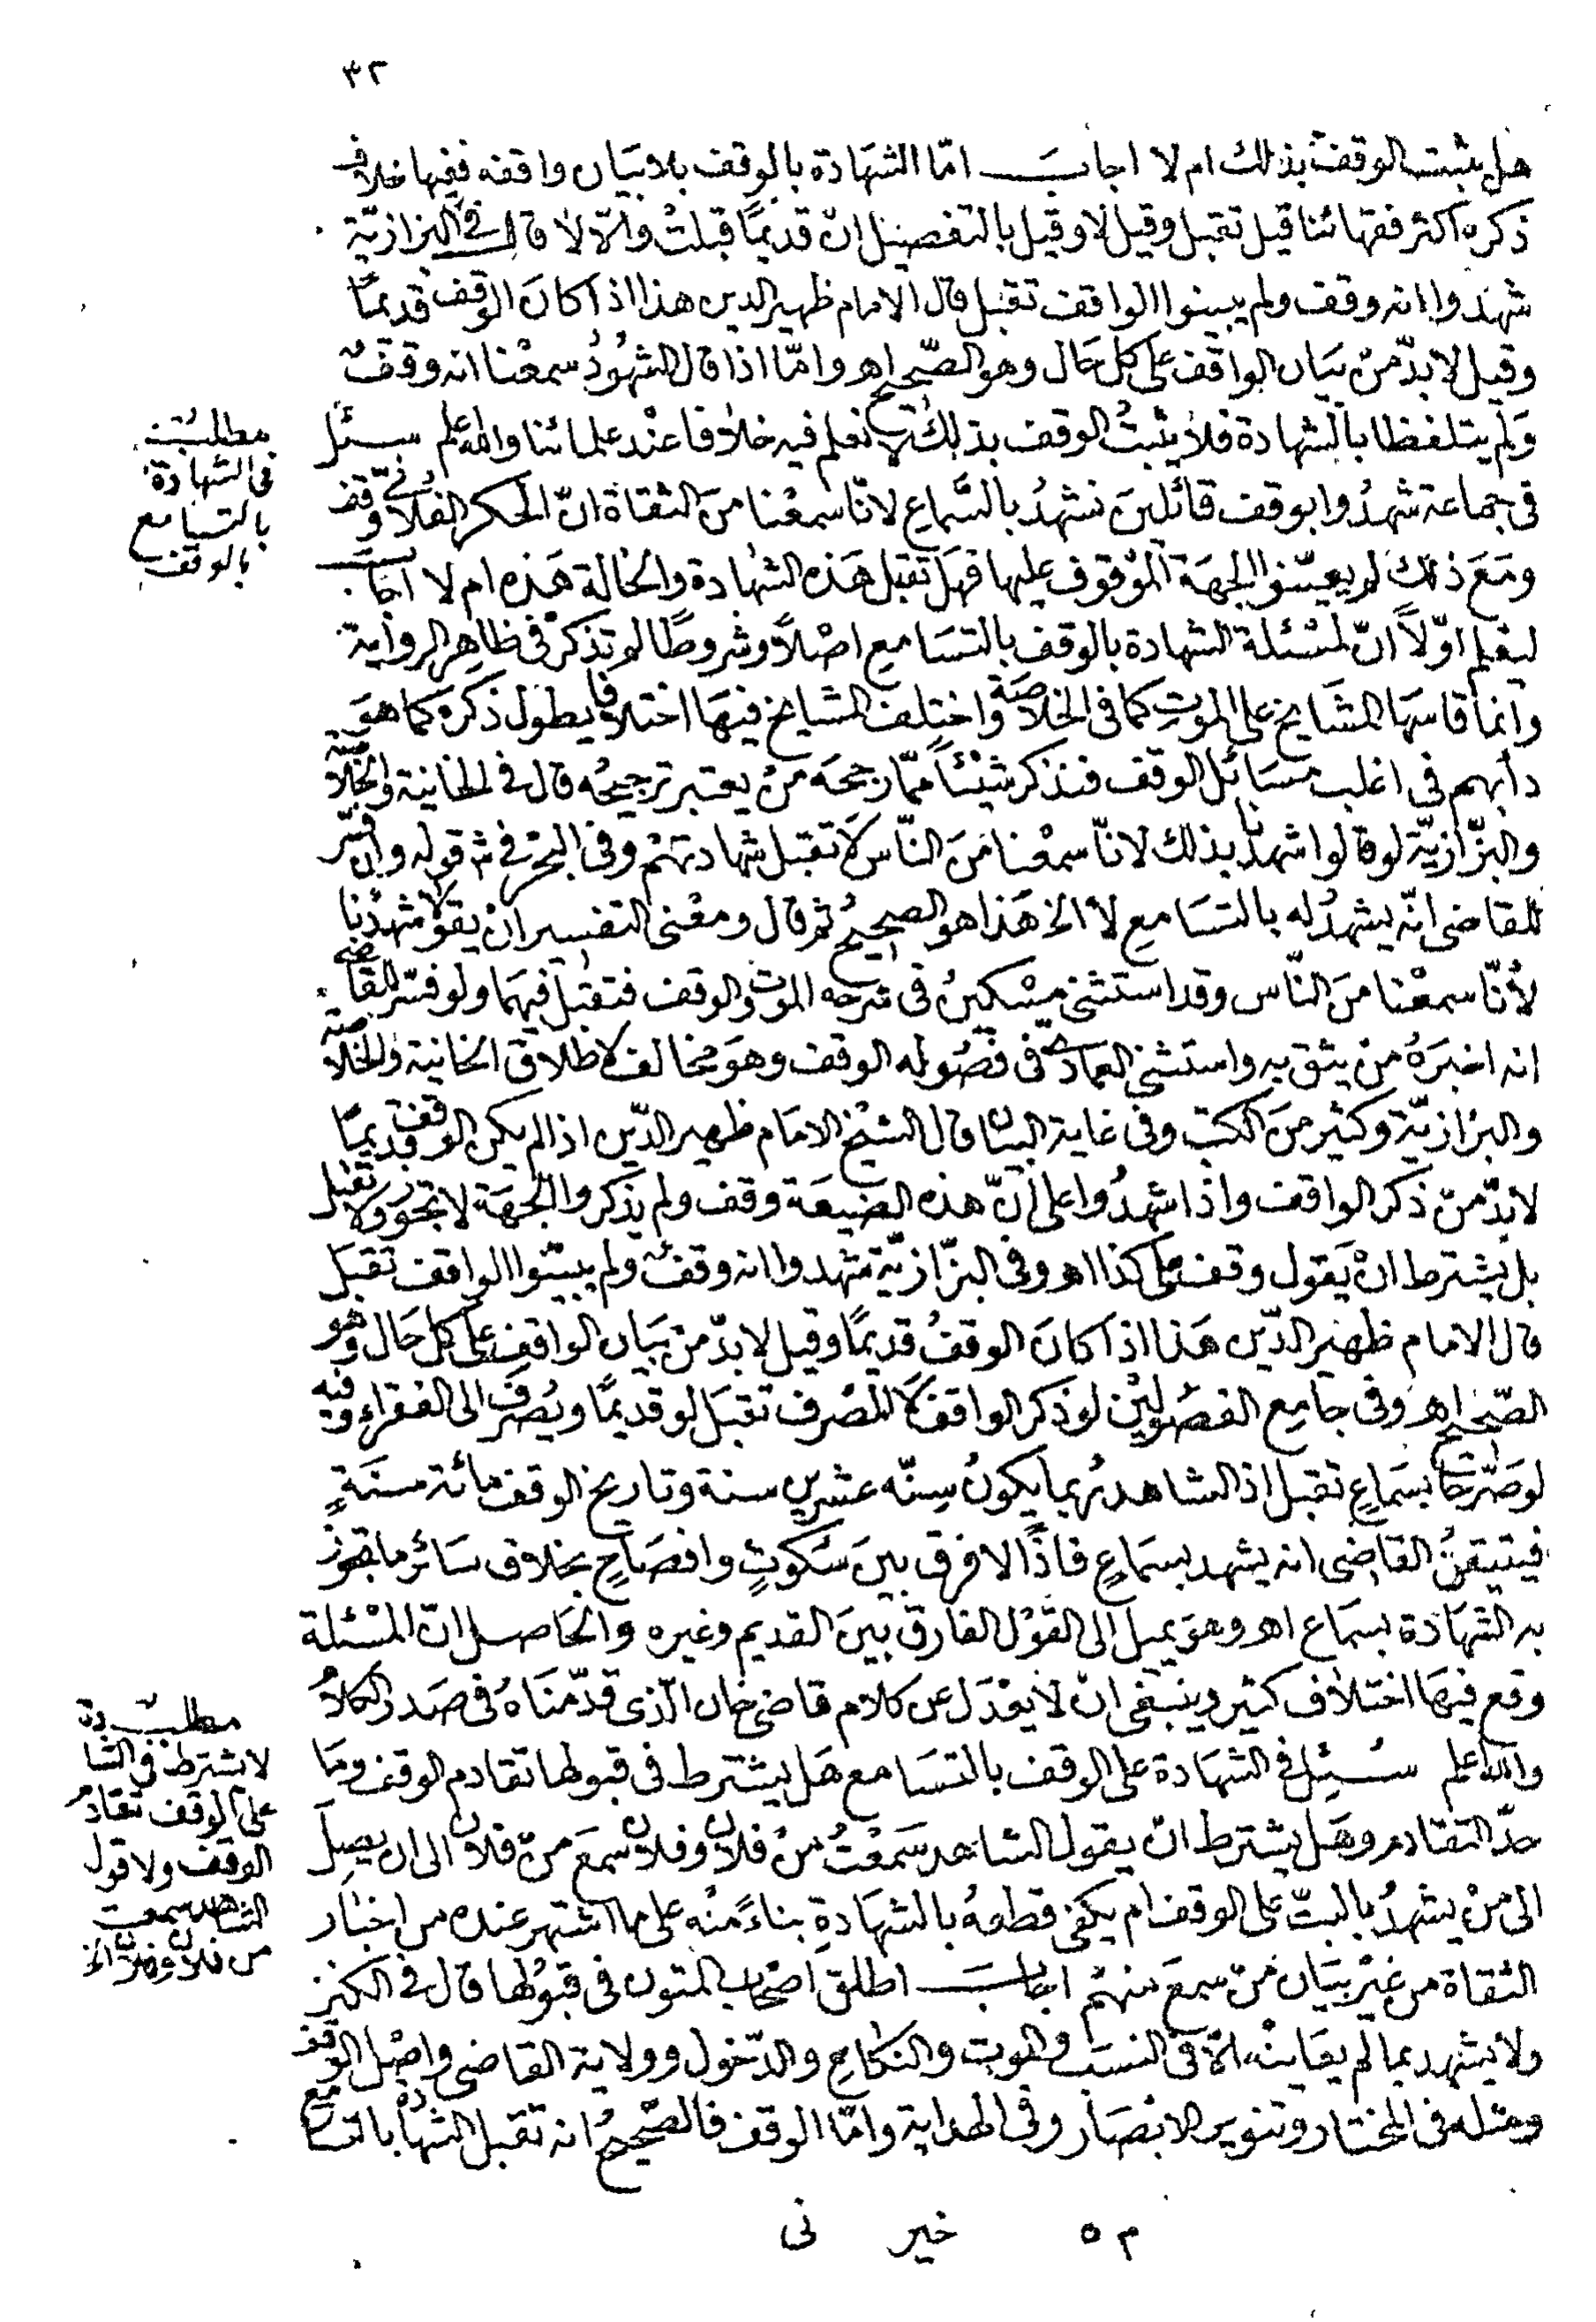 ٣٢
هل يثبت الوقف بذلك ام لا اجاب امّا الشهادة بالوقف بلا بيان واقفه ففيها خلاف
ذكره اكثر فقهائنا قيل تقبل وقيل لا وقيل بالتفصيل ان قديمًا قبلت والّا لا قال في البزازيّة
شهدوا انه وقف ولم يبينوا الواقف تقبل قال الامام ظهير الدين هذا اذا كان الوقف قديمًا
وقيل لا بدّ من بيان الواقف على كل حال وهو الصّحيح اهـ وامّا اذا قال الشهود سمعنا انه وقف
ولم يتلفظا بالشهادة فلا يثبت الوقف بذلك لا نعلم فيه خلافا عند علمائنا والله اعلم سئل
في جماعة شهدوا بوقف قائلين نشهد بالسّماع لانّا سمعنا من الثقاة انّ الحكر الفلاني وقف
ومع ذلك لم يعيّنوا الجهة الموقوف عليها فهل تقبل هذه الشهادة والحالة هذه ام لا اجاب
ليعلم اوّلاً انّ مسئلة الشهادة بالوقف بالتسامع اصلاً وشروطًا لم تذكر في ظاهر الرواية
وانما قاسها المشايخ على الموت كما في الخلاصة واختلف المشايخ فيها اختلافا يطول ذكره كما هو
دأبهم في اغلب مسائل الوقف فنذكر شيئاً ممّا رجحه من يعتبر ترجيحه قال في الخانية والخلاصة
والبزّازيّة لو قالوا شهدنا بذلك لانّا سمعنا من النّاس لا تقبل شهادتهم وفي البحر في شرح قوله وان فسّر
للقاضي انّه يشهد له بالتسامع لا الخ هذا هو الصحيح ثم قال ومعنى التفسير ان يقولا شهدنا
لأنّا سمعنا من النّاس وقد استثنى مسكين في شرحه الموت والوقف فتقبل فيهما ولو فسّر للقاضي
انه اخبره من يثق به واستثنى العمادي في فصوله الوقف وهو مخالف لاطلاق الخانية والخلاصة
والبزازيّة وكثير من الكتب وفي غاية البيان قال الشيخ الامام ظهير الدّين اذا لم يكن الوقف قديمًا
لا بدّ من ذكر الواقف واذا شهدوا على انّ هذه الضيعة وقف ولم يذكروا الجهة لا تجوز ولا تقبل
بل يشترط ان يقول وقف على كذا اهـ وفي البزّازيّة شهدوا انه وقف ولم يبيّنوا الواقف تقبل
قال الامام ظهير الدّين هذا اذا كان الوقف قديمًا وقيل لا بدّ من بيان الواقف على كل حال وهو
الصّحيح اهـ وفي جامع الفصولين لو ذكر الواقف لا المصرف تقبل لو قديمًا ويصرف الى الفقراء وفيه
لو صرّحا بسماعٍ تقبل اذ الشاهد ربما يكون سنّه عشرين سنة وتاريخ الوقف مائة سنةٍ
فيتيقن القاضي انه يشهد بسماعٍ فاذًا لا فرق بين سكوتٍ وافصاحٍ بخلاف سائر ما تجوز
به الشهادة بسماع اهـ وهو يميل الى القول الفارق بين القديم وغيره والحاصل انّ المسئلة
وقع فيها اختلاف كثير وينبغي ان لا يعدل عن كلام قاضي خان الّذي قدّمناه في صدر الكلام
والله اعلم سُئِل في الشهادة على الوقف بالتسامع هل يشترط في قبولها تقادم الوقف وما
حدّ التقادم وهل يشترط ان يقول الشاهد سمعت من فلان وفلان سمع من فلان الى ان يصل
الى من يشهد بالبتّ على الوقف ام يكفي قطعه بالشهادة بناءً منه على ما اشتهر عنده من اخبار
الثقاة من غير بيان من سمع منهم اجاب اطلق اصحاب المتون في قبولها قال في الكنز
ولا يشهد بما لم يعاينه الّا في النسب والموت والنكاح والدّخول وولاية القاضي واصل الوقف
ومثله في المختار وتنوير الابصار وفي الهداية وامّا الوقف فالصّحيح انه تقبل الشهادة بالتسامع
مطلب
في الشهادة
بالتسامع
بالوقف
مطلب
لا تشترط في الشهادة
على الوقف تقادم
الوقف ولا قول
الشاهد سمعت
من فلان وفلان الخ
م ٥ خير نى